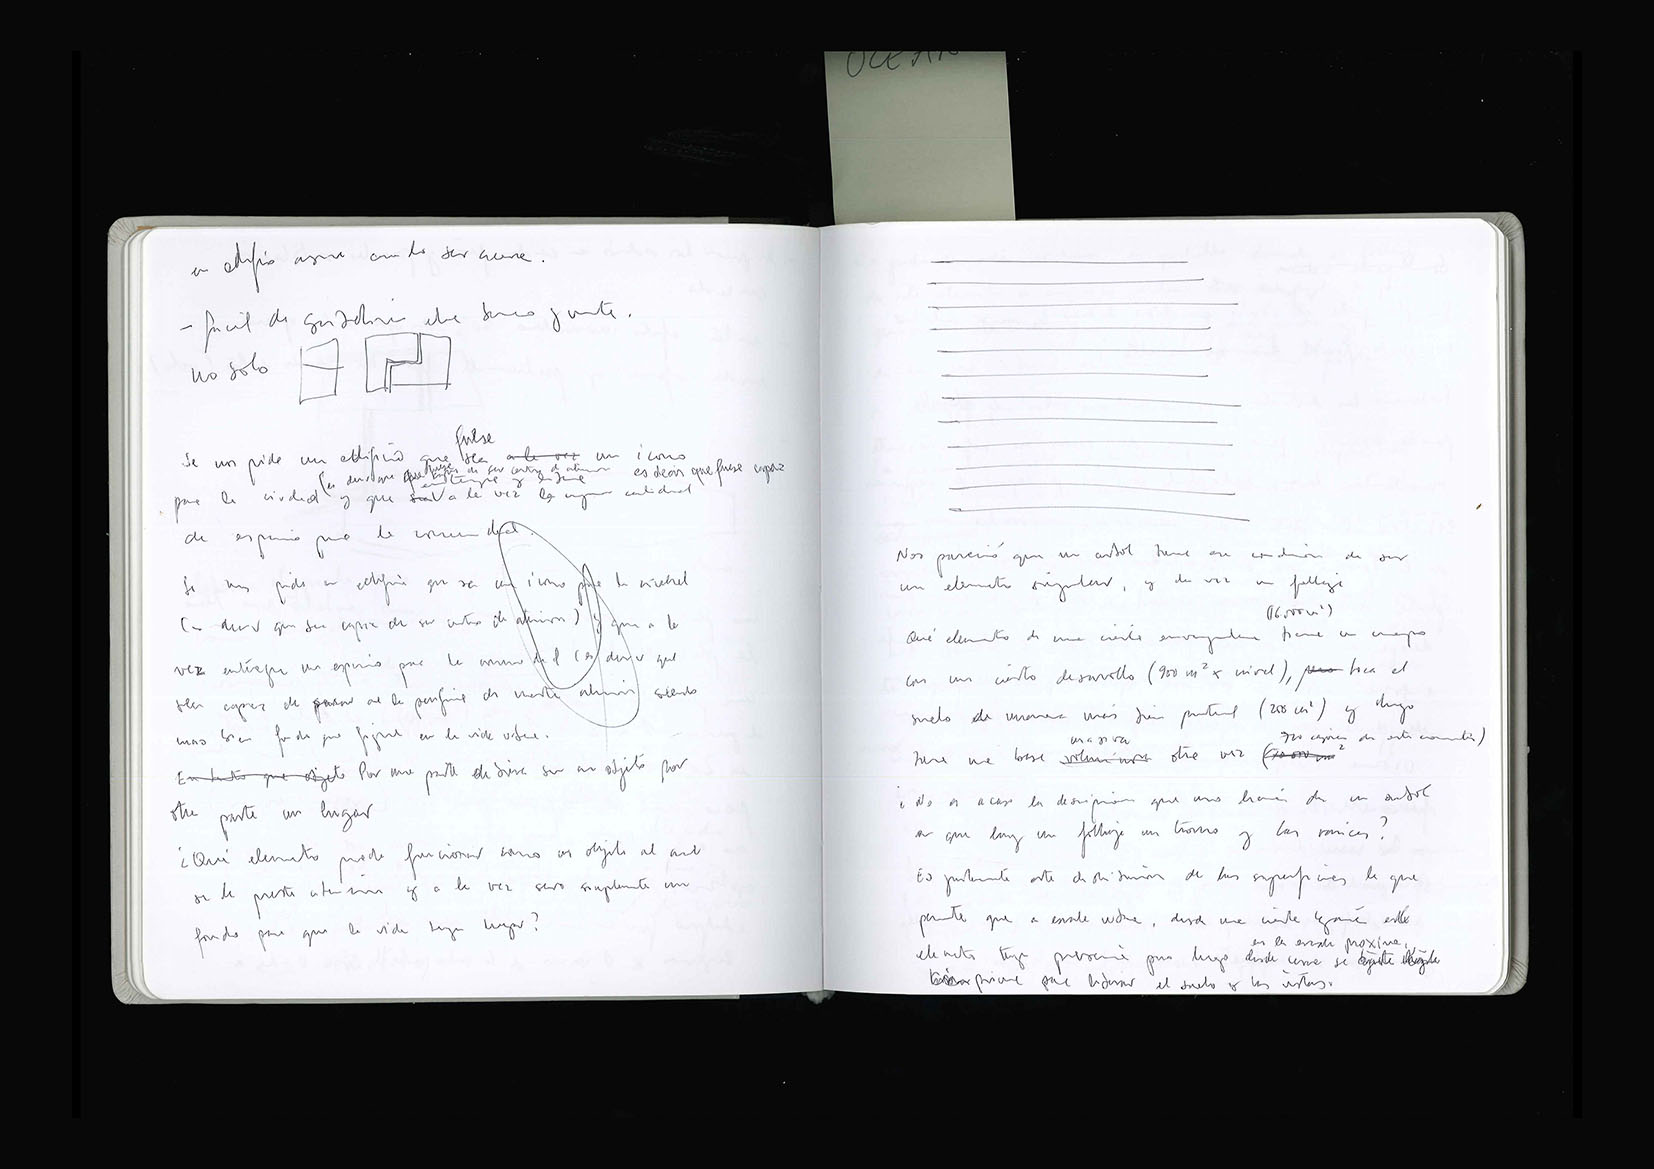 OCEAN
un edificio
- fácil de y
no solo
fuese
Se nos pide un edificio que sea a la vez un icono
es decir que fuese capaz
para la ciudad y que a la vez cantidad
de espacio para la comunidad.
Se nos pide un edificio que sea un icono para la ciudad
(es decir que sea capaz de ser centro de atención) y que a la
vez entregue un espacio para la comunidad (es decir que
sea capaz de pasar a la periferia de nuestra atención siendo
mas bien fondo que figura en la vida urbana.
En tanto que objeto Por una parte debiese ser un objeto por
otra parte un lugar
¿Qué elemento puede funcionar como un objeto al cual
se le presta atención y a la vez sea simplemente un
fondo para que la vida tenga lugar?
Nos pareció que un arbol tiene esa condición de ser
un elemento singular, y a la vez un follaje
Qué elemento de una cierta envergadura tiene un cuerpo
con un cierto desarrollo (900 m² x nivel), toca el
suelo de manera más bien puntual (200 m²) y luego
masiva
720 de estacionamientos)
tiene una base voluminosa otra vez
¿No es acaso la descripción que uno haría de un arbol
en que hay un follaje un tronco y las raices?
Es justamente esta distribución de las superficies la que
permite que a escala urbana, desde una cierta lejanía este
en la escala proxima,
elemento tenga presencia pero luego desde cerca se
para liberar el suelo y las vistas.